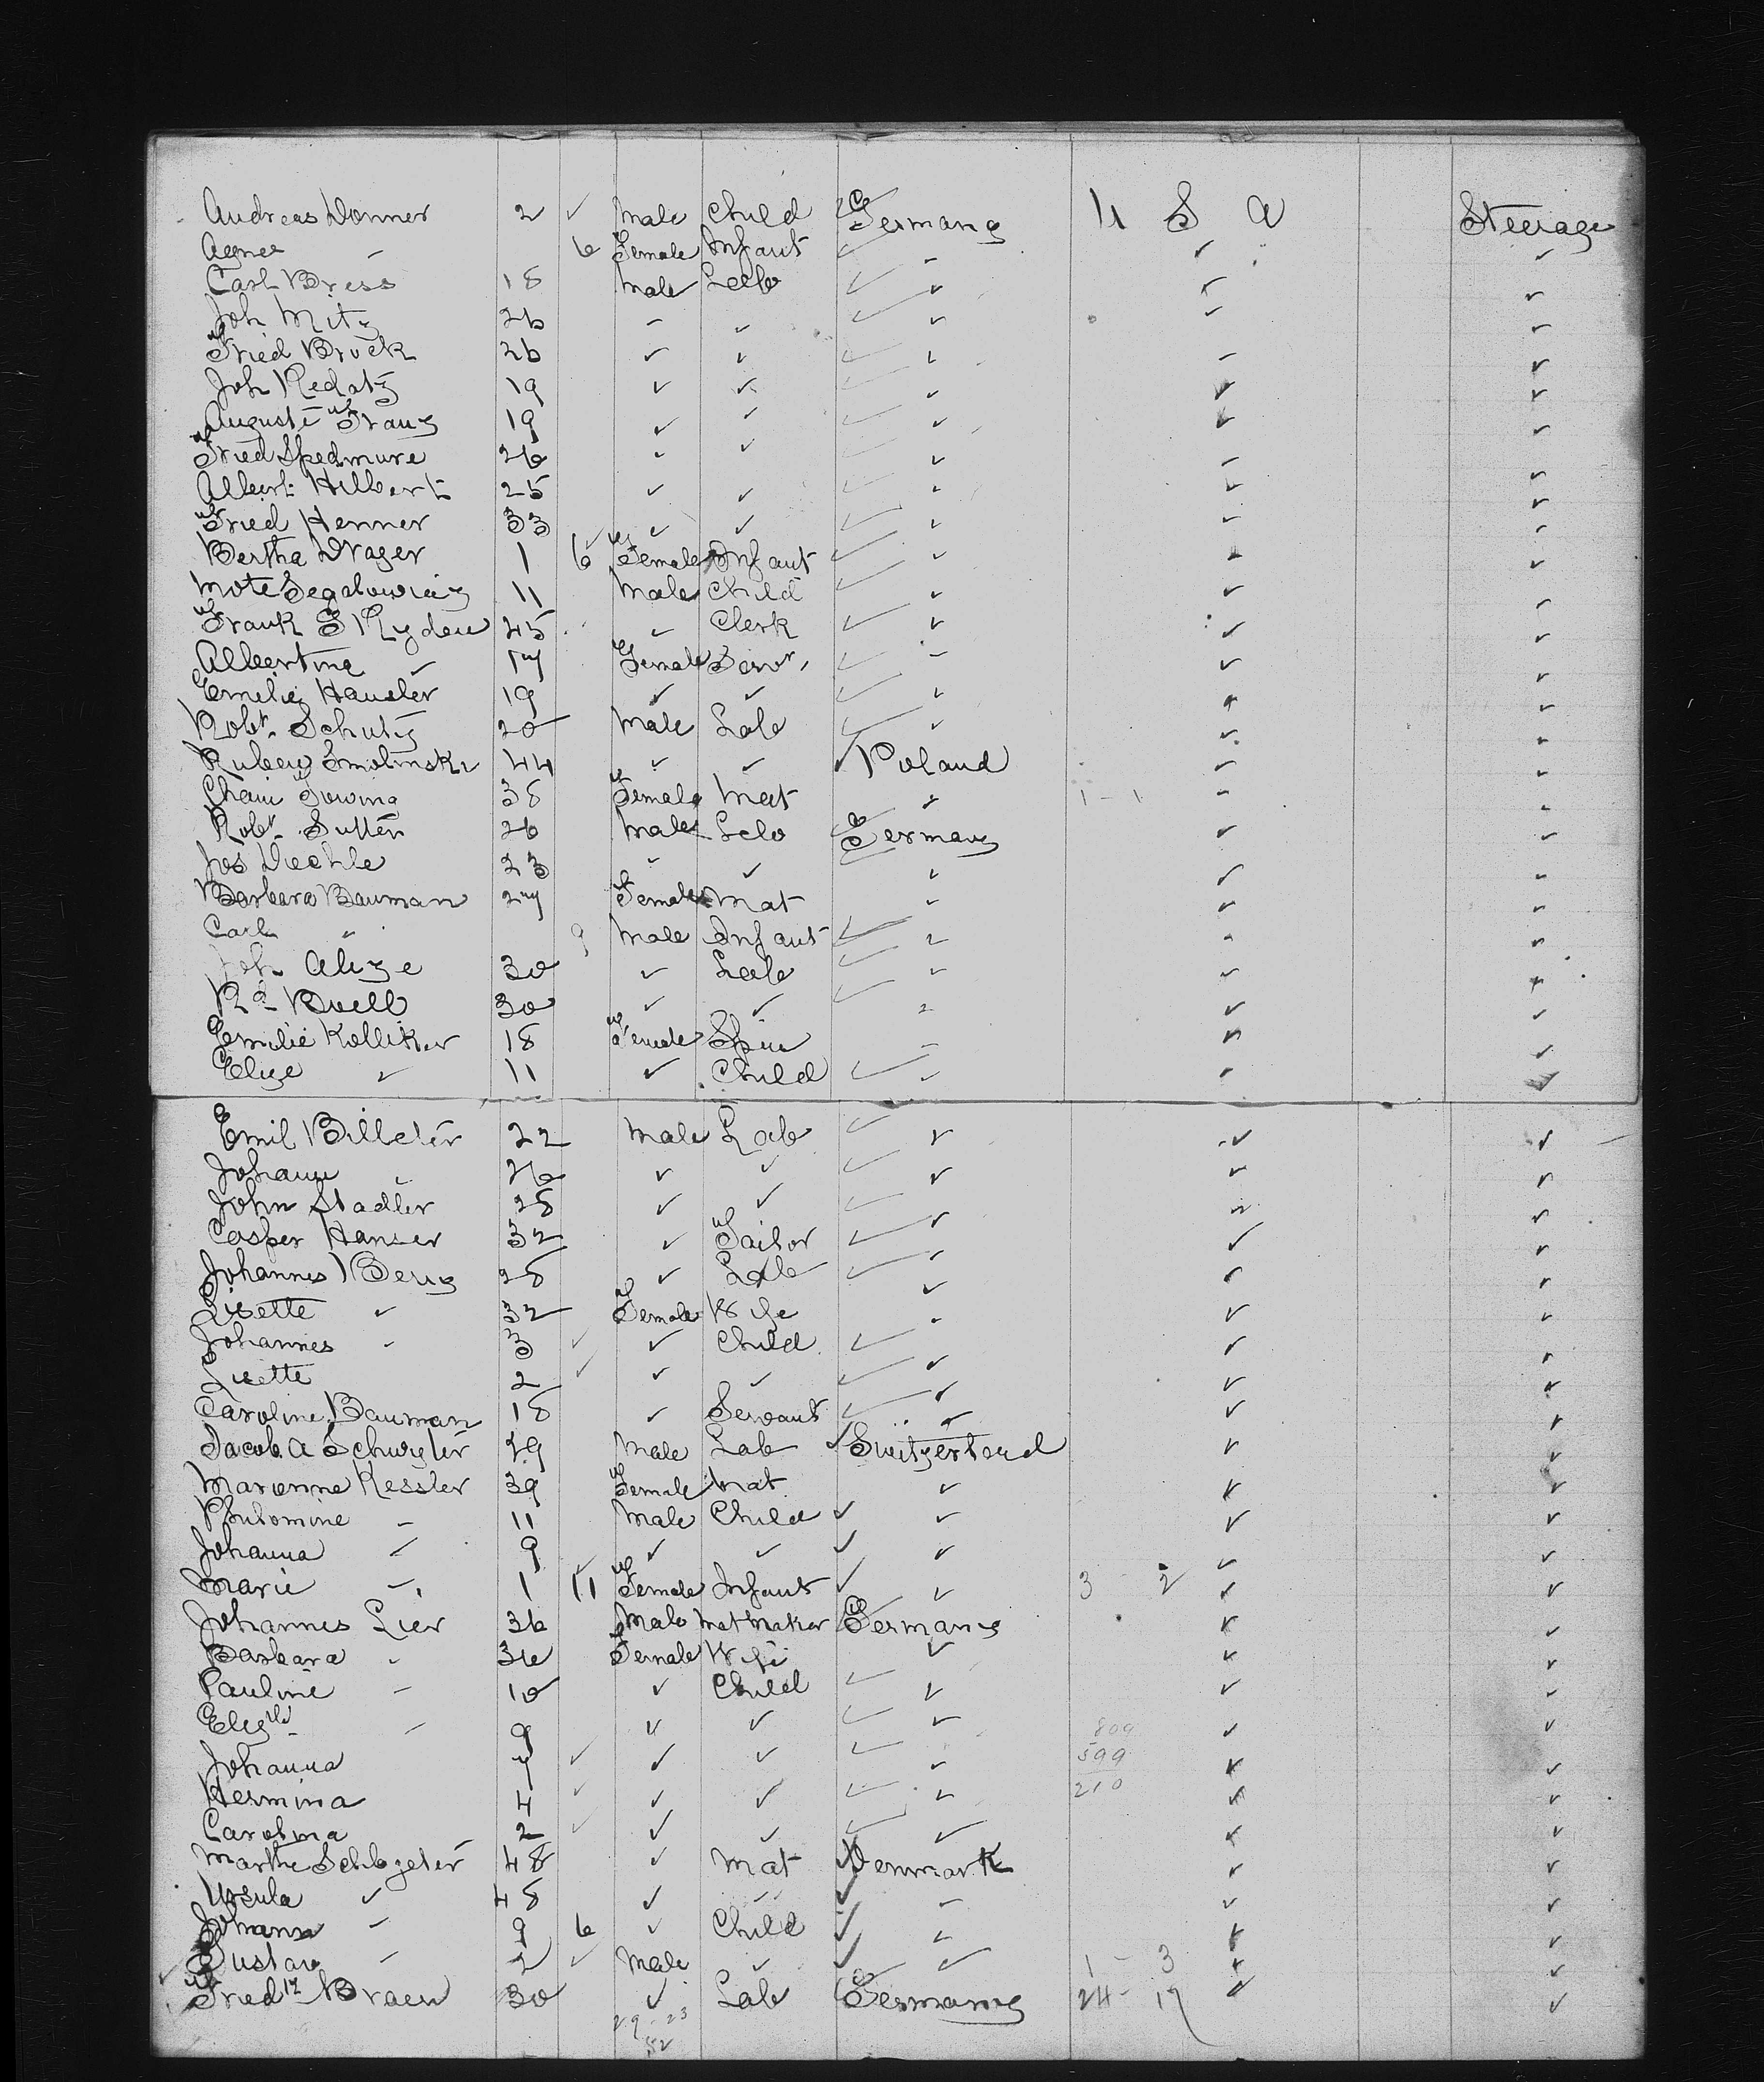 Andreas Donner 2 ✓ Male Child Germany U S A Steerage
Agnes " 6 Female Infant ✓ ✓ ✓ ✓
Carl Bress 18 Male Lab ✓ ✓ ✓ ✓
Joh Mitz 26 ✓ ✓ ✓ ✓ ✓ ✓
Fried Brock 26 ✓ ✓ ✓ ✓ ✓ ✓
Joh Redatz 19 ✓ ✓ ✓ ✓ ✓ ✓
Auguste Franz 19 ✓ ✓ ✓ ✓ ✓ ✓
Fried Spedmure 26 ✓ ✓ ✓ ✓ ✓ ✓
Albert Hilbert 25 ✓ ✓ ✓ ✓ ✓ ✓
Fried Henner 33 ✓ ✓ ✓ ✓ ✓ ✓
Bertha Drager 1 6 Female Infant ✓ ✓ ✓ ✓
Mote Segalowicz 11 Male Child ✓ ✓ ✓ ✓
Frank E Ryden 45 ✓ Clerk ✓ ✓ ✓ ✓
Albertina ✓ 17 Female Serv, ✓ ✓ ✓ ✓
Emilie Hausler 19 ✓ ✓ ✓ ✓ ✓ ✓
Robt. Schutz 20 Male Lab ✓ ✓ ✓ ✓
Ruben Smolinski 44 ✓ ✓ ✓ Poland ✓ ✓
Chaie 38 Female Mat ✓ 1 - 1 ✓ ✓
Robt. Sutter 26 Male Lab Germany ✓ ✓
Jos Diechle 23 ✓ ✓ ✓ ✓ ✓ ✓
Barbara Bauman 27 Female Mat ✓ ✓ ✓
Carl " 9 Male Infant ✓ ✓ ✓ ✓
Joh Alize 30 ✓ Lab ✓ ✓ ✓ ✓
Rd Buell 30 ✓ ✓ ✓ ✓ ✓ ✓
Emilie Kolliker 18 Female Spin ✓ ✓ ✓
Elize ✓ 11 ✓ Child ✓ ✓ ✓ ✓
Emil Billeter 22 Male Lab ✓ ✓ ✓ ✓
Johann " 26 ✓ ✓ ✓ ✓ ✓ ✓
John Stadler 28 ✓ ✓ ✓ ✓ ✓ ✓
Casper Hanser 32 ✓ Tailor ✓ ✓ ✓ ✓
Johannes Benz 28 ✓ Lab ✓ ✓ ✓ ✓
Lisette ✓ 32 Female Wife ✓ ✓ ✓
Johannes ✓ 3 ✓ ✓ Child ✓ ✓ ✓ ✓
Lisette 2 ✓ ✓ ✓ ✓ ✓ ✓ ✓
Caroline Bauman 18 ✓ Servant ✓ ✓ ✓ ✓
Jacob A Schwyter 29 Male Lab ✓ Switzerland ✓ ✓
Marianne Kessler 39 Female Mat ✓ ✓ ✓
Philomine " 11 Male Child ✓ ✓ ✓ ✓
Johanna ✓ 9 ✓ ✓ ✓ ✓ ✓ ✓
Marie " 1 11 Female Infant ✓ ✓ 3 - 2 ✓ ✓
Johannes Lier 36 Male Mat Maker Germany ✓ ✓
Barbara " 36 Female Wife ✓ ✓ ✓
Pauline " 10 ✓ Child ✓ ✓ ✓ ✓
Elizth " 9 ✓ ✓ ✓ ✓ 809 ✓ ✓
Johanna 7 ✓ ✓ ✓ ✓ ✓ 599 ✓ ✓
Hermina 4 ✓ ✓ ✓ ✓ ✓ 210 ✓ ✓
Carolina 2 ✓ ✓ ✓ ✓ ✓ ✓ ✓
Marthe Schlazeter 48 ✓ Mat ✓ Denmark ✓ ✓
Ursula ✓ 48 ✓ " ✓ ✓ ✓ ✓
Johann " 9 6 ✓ Child ✓ ✓ ✓ ✓
Gustav " 2 ✓ Male ✓ ✓ ✓ 1 - 3 ✓ ✓
Friedr Braen 30 ✓ Lab Germany 24 - 17 ✓ ✓
29 - 23
52